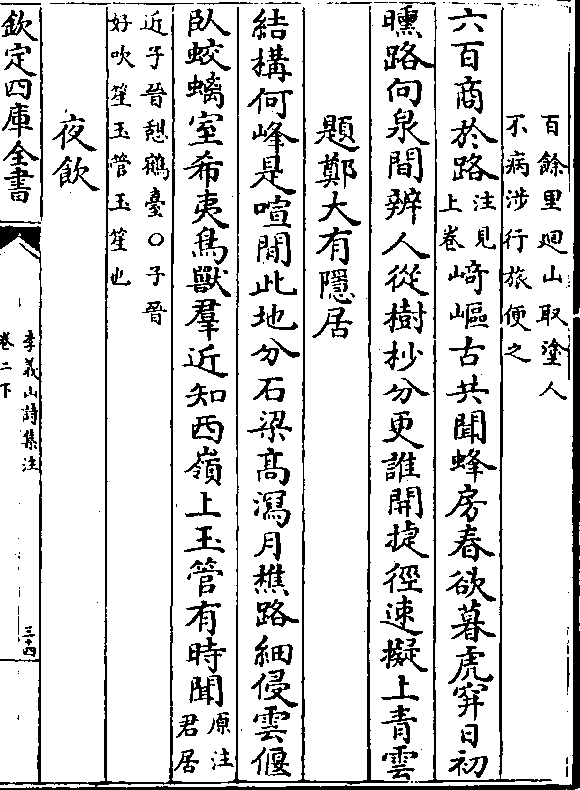 百餘里迴山取塗人
不病涉行旅便之
六百商於路注見
上卷崎嶇古共聞蜂房春欲暮虎穽日初
曛路向泉間辨人從樹杪分更誰開捷徑速擬上青雲
題鄭大有隱居
結構何峰是喧閒此地分石梁高瀉月樵路細侵雲偃
臥蛟螭室希夷鳥獸羣近知西嶺上玉管有時聞原注
君居
近子晉憇鶴臺〇子晉
好吹笙玉管玉笙也
夜飲
欽定四庫全書
李義山詩集注
卷二下
三十四